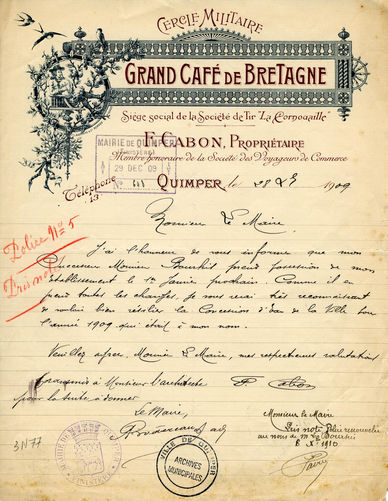 CERCLE MILITAIRE
GRAND CAFÉ DE BRETAGNE
Siège social de la Société de Tir "La Cornouaille"
F. CABON, PROPRIÉTAIRE
Membre honoraire de la Société des Voyageurs de Commerce
MAIRIE DE QUIMPER
29 DEC 09
Téléphone
13
QUIMPER, le 28 1909
Monsieur Le Maire,
Police No 5
Pris note
J'ai l'honneur de vous informer que mon
Successeur Monsieur prend possession de mon
établissement le 1er Janvier prochain. Comme il en
prend toutes les charges, je vous serai très reconnaissant
de vouloir bien résilier la Concession d'eau de la Ville pour
l'année 1909 qui était à mon nom.
Veuillez agréer, Monsieur Le Maire, mes respectueuses salutations
F Cabon
Transmis à Monsieur l'architecte
pour la suite à donner
Le Maire,
Monsieur le Maire
Pris note Police renouvelée
au nom de M.
8 X 1910
3N77
VILLE DE QUIMPER
ARCHIVES
MUNICIPALES
FINISTÈRE